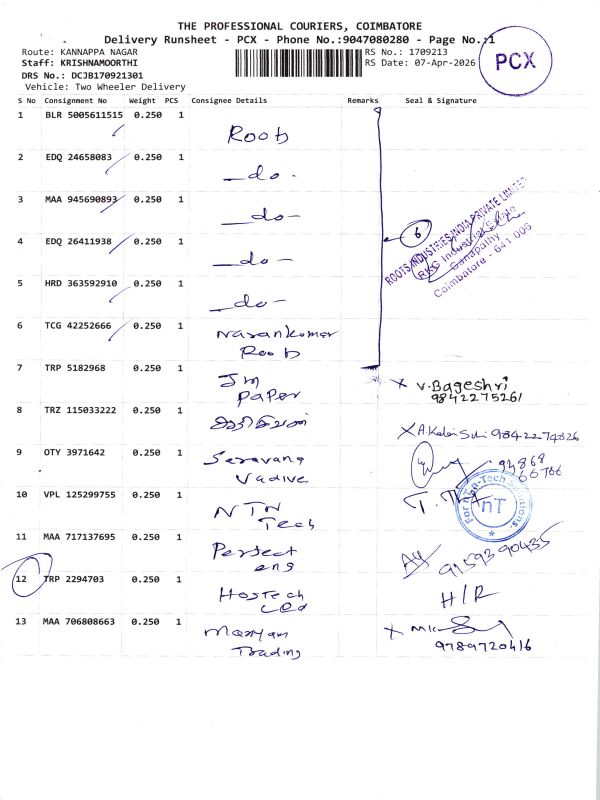 THE PROFESSIONAL COURIERS, COIMBATORE
Delivery Runsheet - PCX - Phone No.:9047080280 - Page No.:1
Route: KANNAPPA NAGAR
RS No.: 1709213
Staff: KRISHNAMOORTHI
RS Date: 07-Apr-2026
DRS No.: DCJB170921301
Vehicle: Two Wheeler Delivery
PCX
S No Consignment No Weight PCS Consignee Details Remarks Seal & Signature
1 BLR 5005611515 0.250 1
Roots
2 EDQ 24658083 0.250 1
-do-
3 MAA 945690893 0.250 1
-do-
4 EDQ 26411938 0.250 1
-do-
6
ROOTS INDUSTRIES INDIA PRIVATE LIMITED
RKG Industrial Estate
Ganapathy
Coimbatore - 641 006
5 HRD 363592910 0.250 1
-do-
6 TCG 42252666 0.250 1
Narankumar
Roots
7 TRP 5182968 0.250 1
Jm
paper
X V. Bageshri
9842275261
8 TRZ 115033222 0.250 1
X 9842274826
9 OTY 3971642 0.250 1
Saravana
Vadive
94868
66766
10 VPL 125299755 0.250 1
NTN
Tech
nT
11 MAA 717137695 0.250 1
Perfect
eng
9159390435
12 TRP 2294703 0.250 1
Hostech
H/R
13 MAA 706808663 0.250 1
Trading
X
9789720416